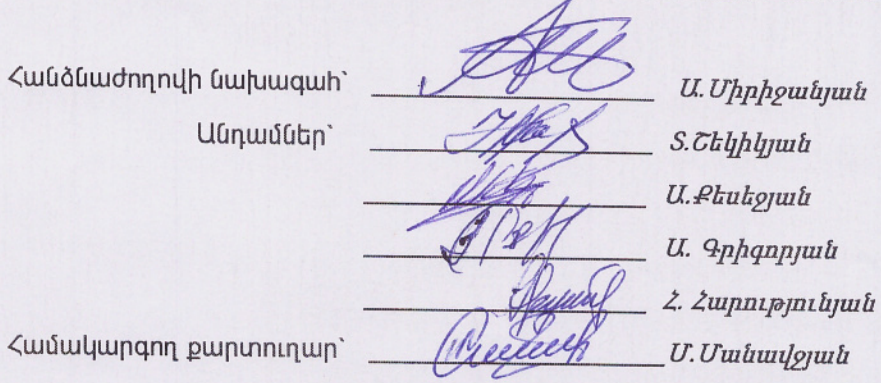 Հանձնաժողովի նախագահ՝ Ա. Միրիջանյան
Անդամներ՝ Տ.Շեկիկյան
Ա.Քեսեջյան
Ա. Գրիգորյան
Հ. Հարությունյան
Համակարգող քարտուղար՝ Մ.Մանավջյան